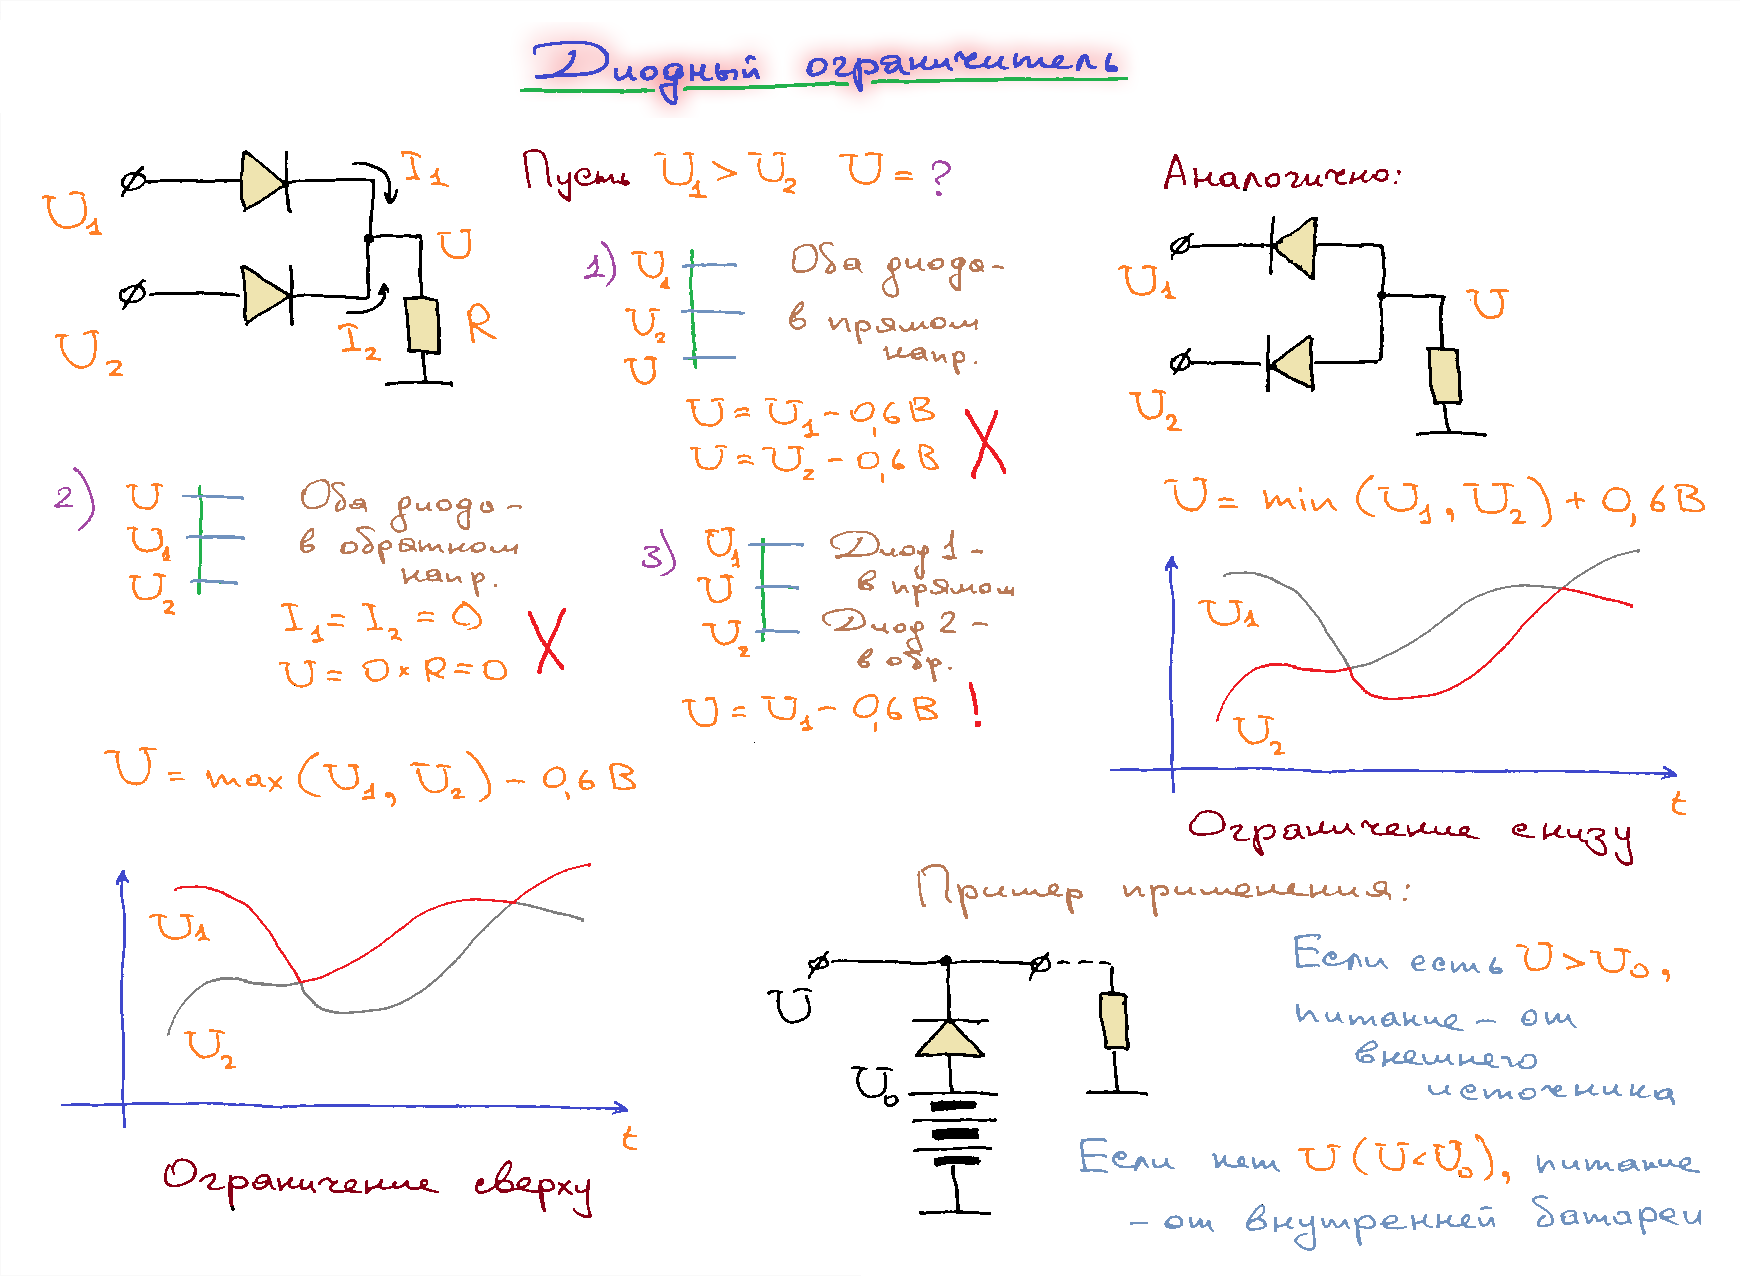 Диодный ограничитель
U1
U2
I1
I2
U
R
Пусть U1 > U2 U = ?
1) U1
U2
U
Оба диода -
в прямом
напр.
U = U1 - 0,6 В
U = U2 - 0,6 В
X
2) U
U1
U2
Оба диода -
в обратном
напр.
I1 = I2 = 0
U = 0 × R = 0
X
3) U1
U
U2
Диод 1 -
в прямом
Диод 2 -
в обр.
U = U1 - 0,6 В !
U = max (U1, U2) - 0,6 В
U1
U2
t
Ограничение сверху
Аналогично:
U1
U2
U
U = min (U1, U2) + 0,6 В
U1
U2
t
Ограничение снизу
Пример применения:
U
U0
Если есть U > U0,
питание - от
внешнего
источника
Если нет U (U < U0), питание
- от внутренней батареи